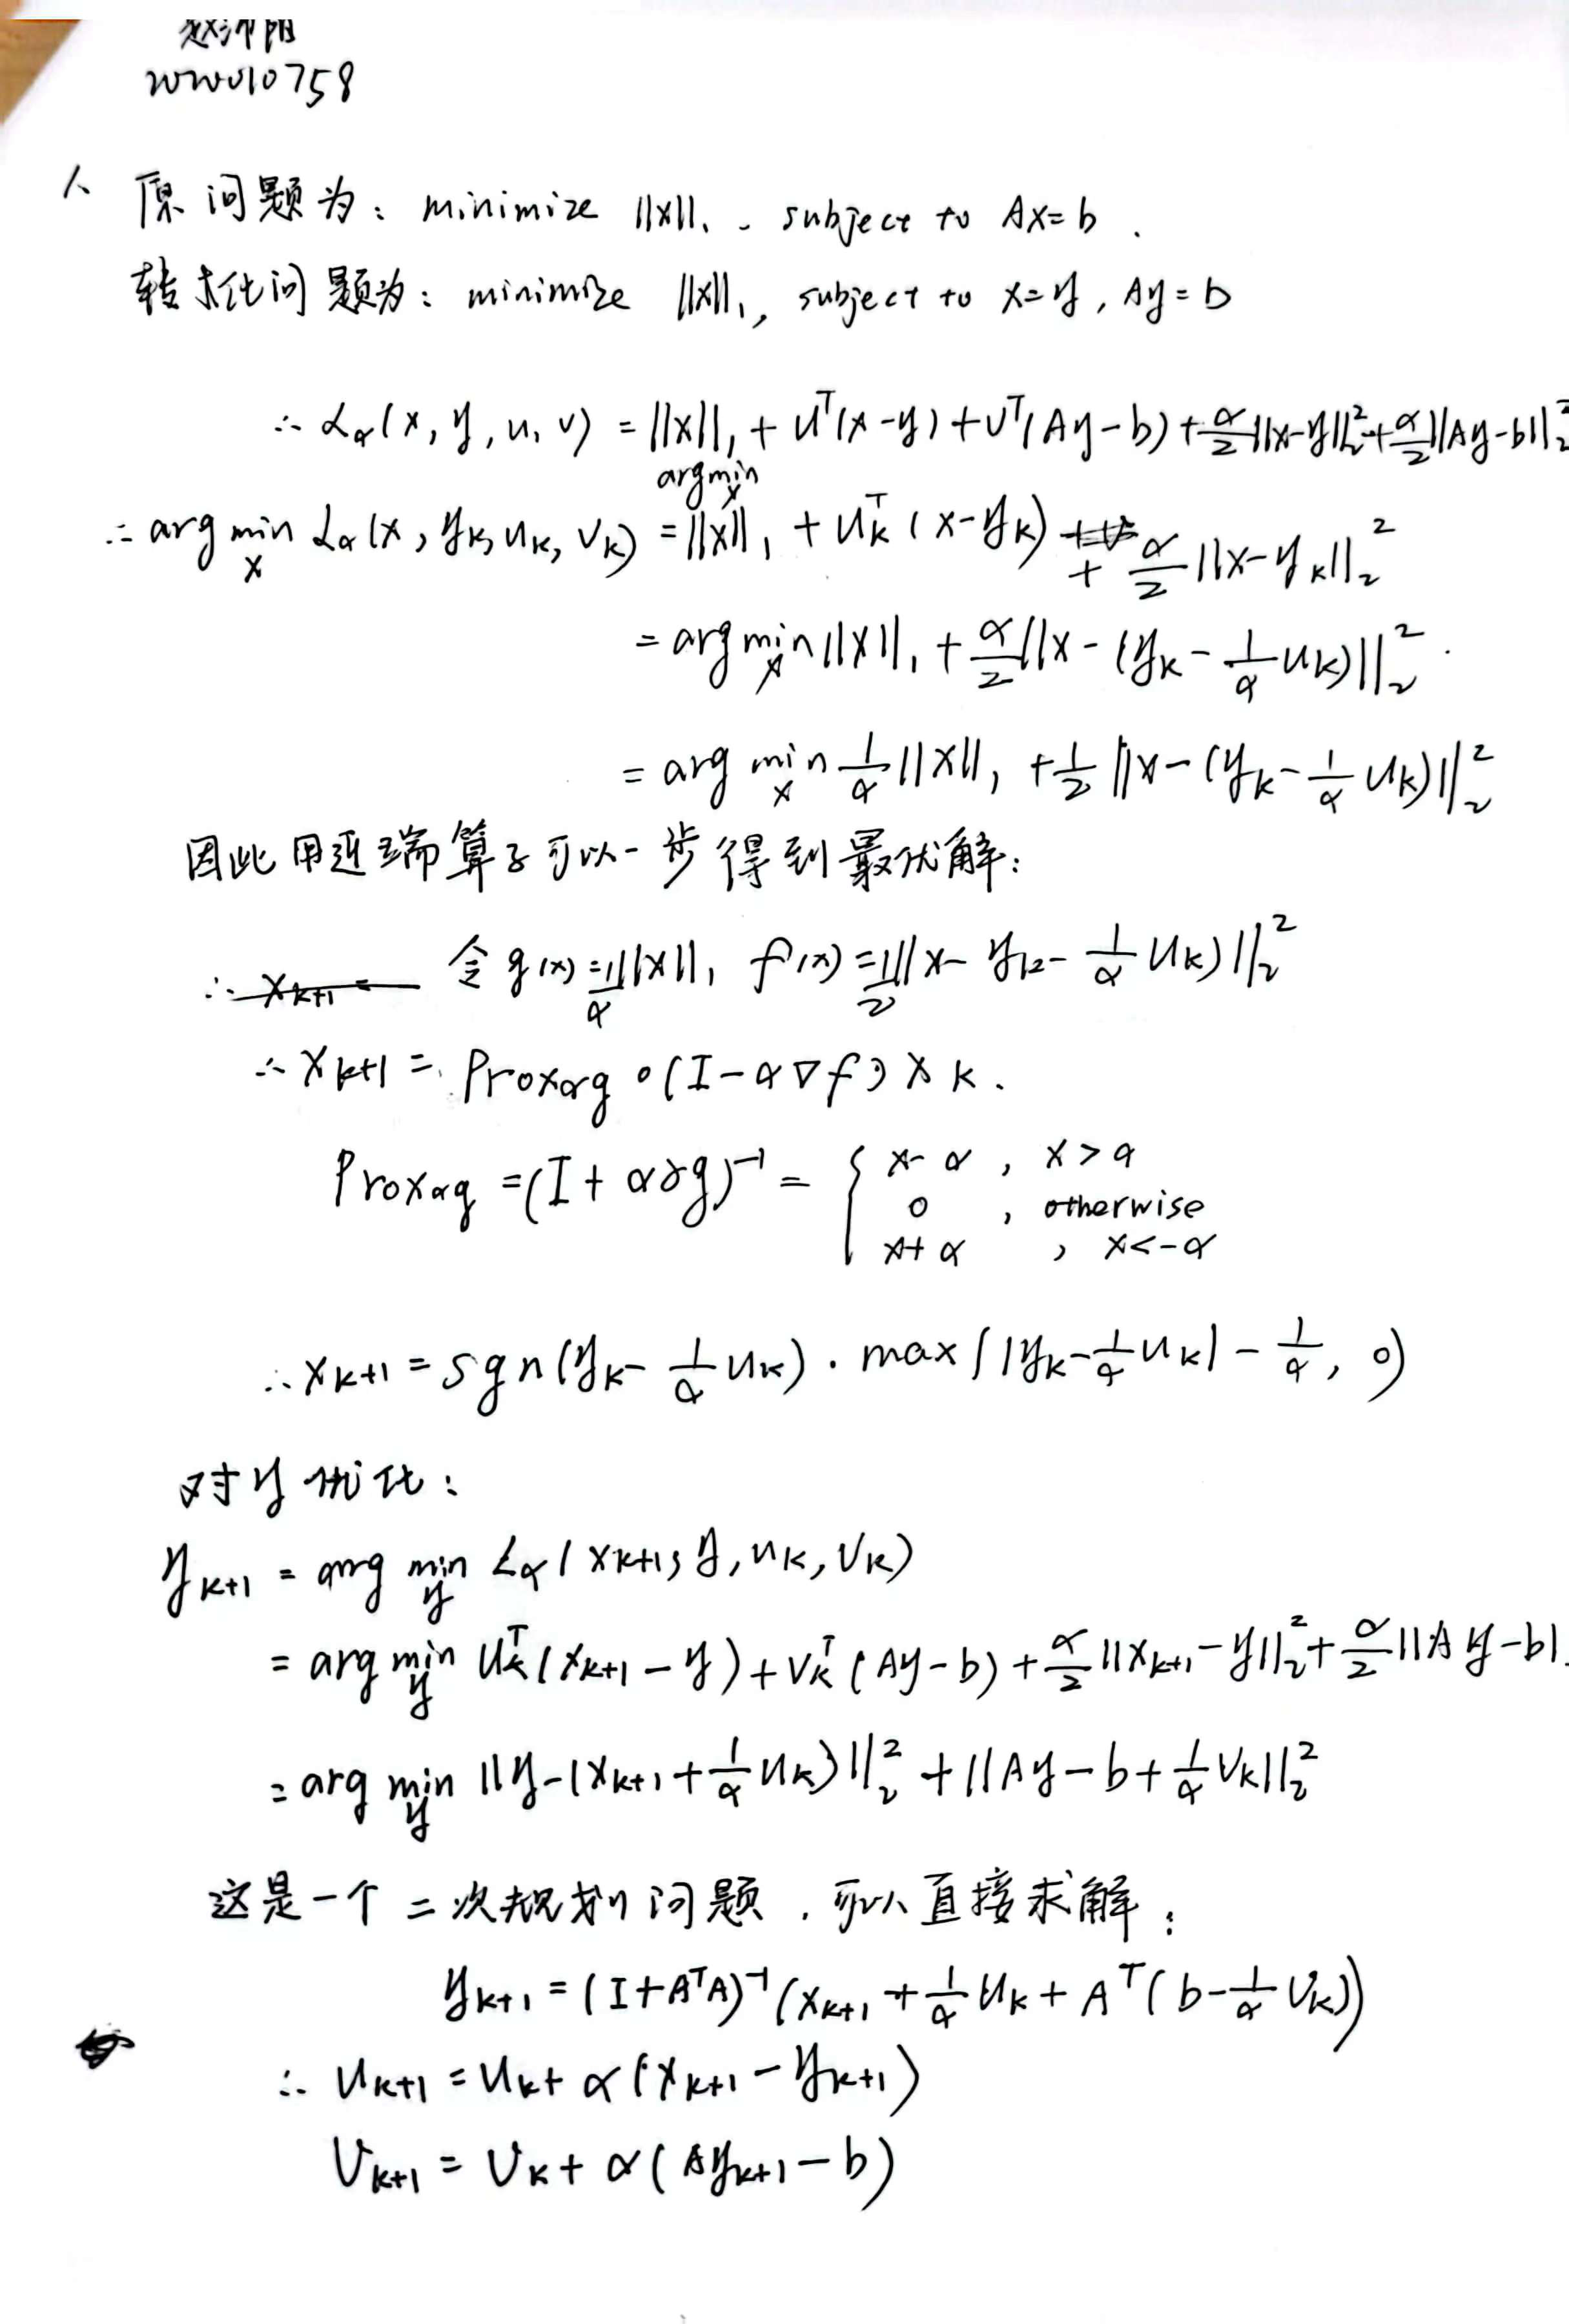 赵沛阳
ww010758
1、原问题为：minimize ||x||₁, subject to Ax=b.
转化问题为：minimize ||x||₁, subject to x=y, Ay=b
∴ L_α(x, y, u, v) = ||x||₁ + uᵀ(x-y) + vᵀ(Ay-b) + α/2||x-y||₂² + α/2||Ay-b||₂²
∴ arg min_x L_α(x, y_k, u_k, v_k) = argmin_x ||x||₁ + u_kᵀ(x-y_k) + α/2 ||x-y_k||₂²
= arg min_x ||x||₁ + α/2||x-(y_k - 1/α u_k)||₂².
= arg min_x 1/α ||x||₁ + 1/2 ||x-(y_k - 1/α u_k)||₂²
因此用近端算子可以一步得到最优解：
∴ x_{k+1} = 令 g(x) = 1/α ||x||₁ f(x) = 1/2||x- y_k - 1/α u_k)||₂²
∴ x_{k+1} = Prox_{αg} ∘ (I-α∇f) x_k.
Prox_{αg} = (I+α∂g)⁻¹ = { x-α , x>α
0 , otherwise
x+α , x<-α
∴ x_{k+1} = sgn(y_k - 1/α u_k) · max(|y_k - 1/α u_k| - 1/α, 0)
对y优化：
y_{k+1} = arg min_y L_α(x_{k+1}, y, u_k, v_k)
= arg min_y u_kᵀ(x_{k+1} - y) + v_kᵀ(Ay-b) + α/2 ||x_{k+1} - y||₂² + α/2 ||Ay-b|
= arg min_y ||y-(x_{k+1} + 1/α u_k)||₂² + ||Ay-b + 1/α v_k||₂²
这是一个二次规划问题，可以直接求解：
y_{k+1} = (I+AᵀA)⁻¹(x_{k+1} + 1/α u_k + Aᵀ(b - 1/α v_k))
∴ u_{k+1} = u_k + α(x_{k+1} - y_{k+1})
v_{k+1} = v_k + α(Ay_{k+1} - b)